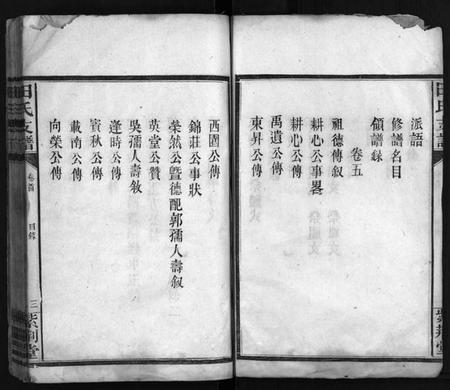 派語
修譜名目
領譜錄
卷五
祖德傳敘
耕心公事畧
耕心公傳
禹遺公傳
東昇公傳
西園公傳
錦莊公事狀
榮然公暨德配郭孺人壽敘
英堂公贊
吳孺人壽敘
逢時公傳
賓秋公傳
載南公傳
向榮公傳
田氏支譜
卷首
目錄
三
紫荊堂